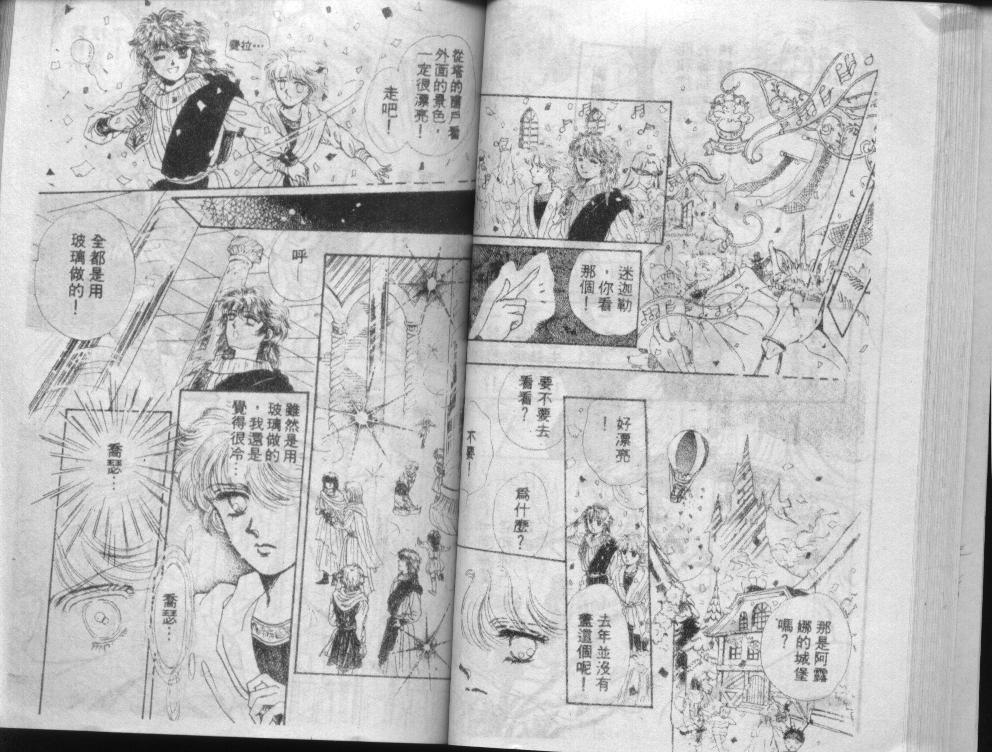 迷迦勒
，你看
那個！
好漂亮
！
那是阿露
娜的城堡
嗎？
去年並沒有
蓋這個呢！
要不要去
看看？
為什麼？
不要！
從塔的窗戶看
外面的景色，
一定很漂亮！
走吧！
呼—
全都是用
玻璃做的！
雖然是用
玻璃做的
，我還是
覺得很冷…
喬瑟…
喬瑟…